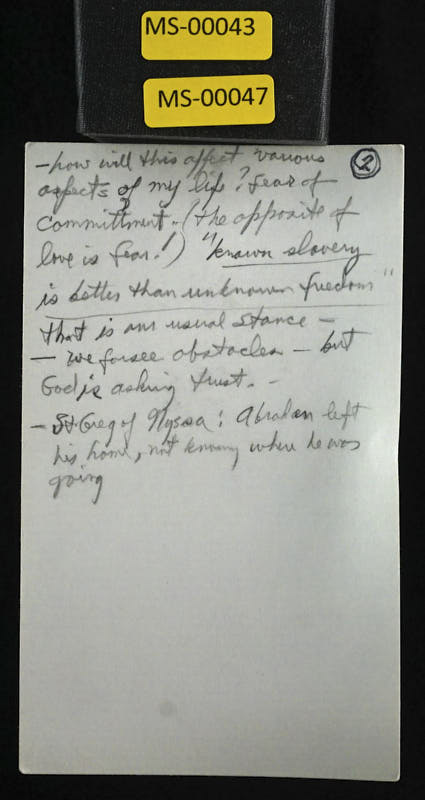 MS-00043
MS-00047
- how will this affect various ②
aspects of my life? Fear of
committment. (the opposite of
love is fear!) "known slavery
is better than unknown freedom"
that is our usual stance -
- we forsee obstacles - but
God is asking trust. -
- St Greg of Nyssa: Abraham left
his home, not knowing where he was
going